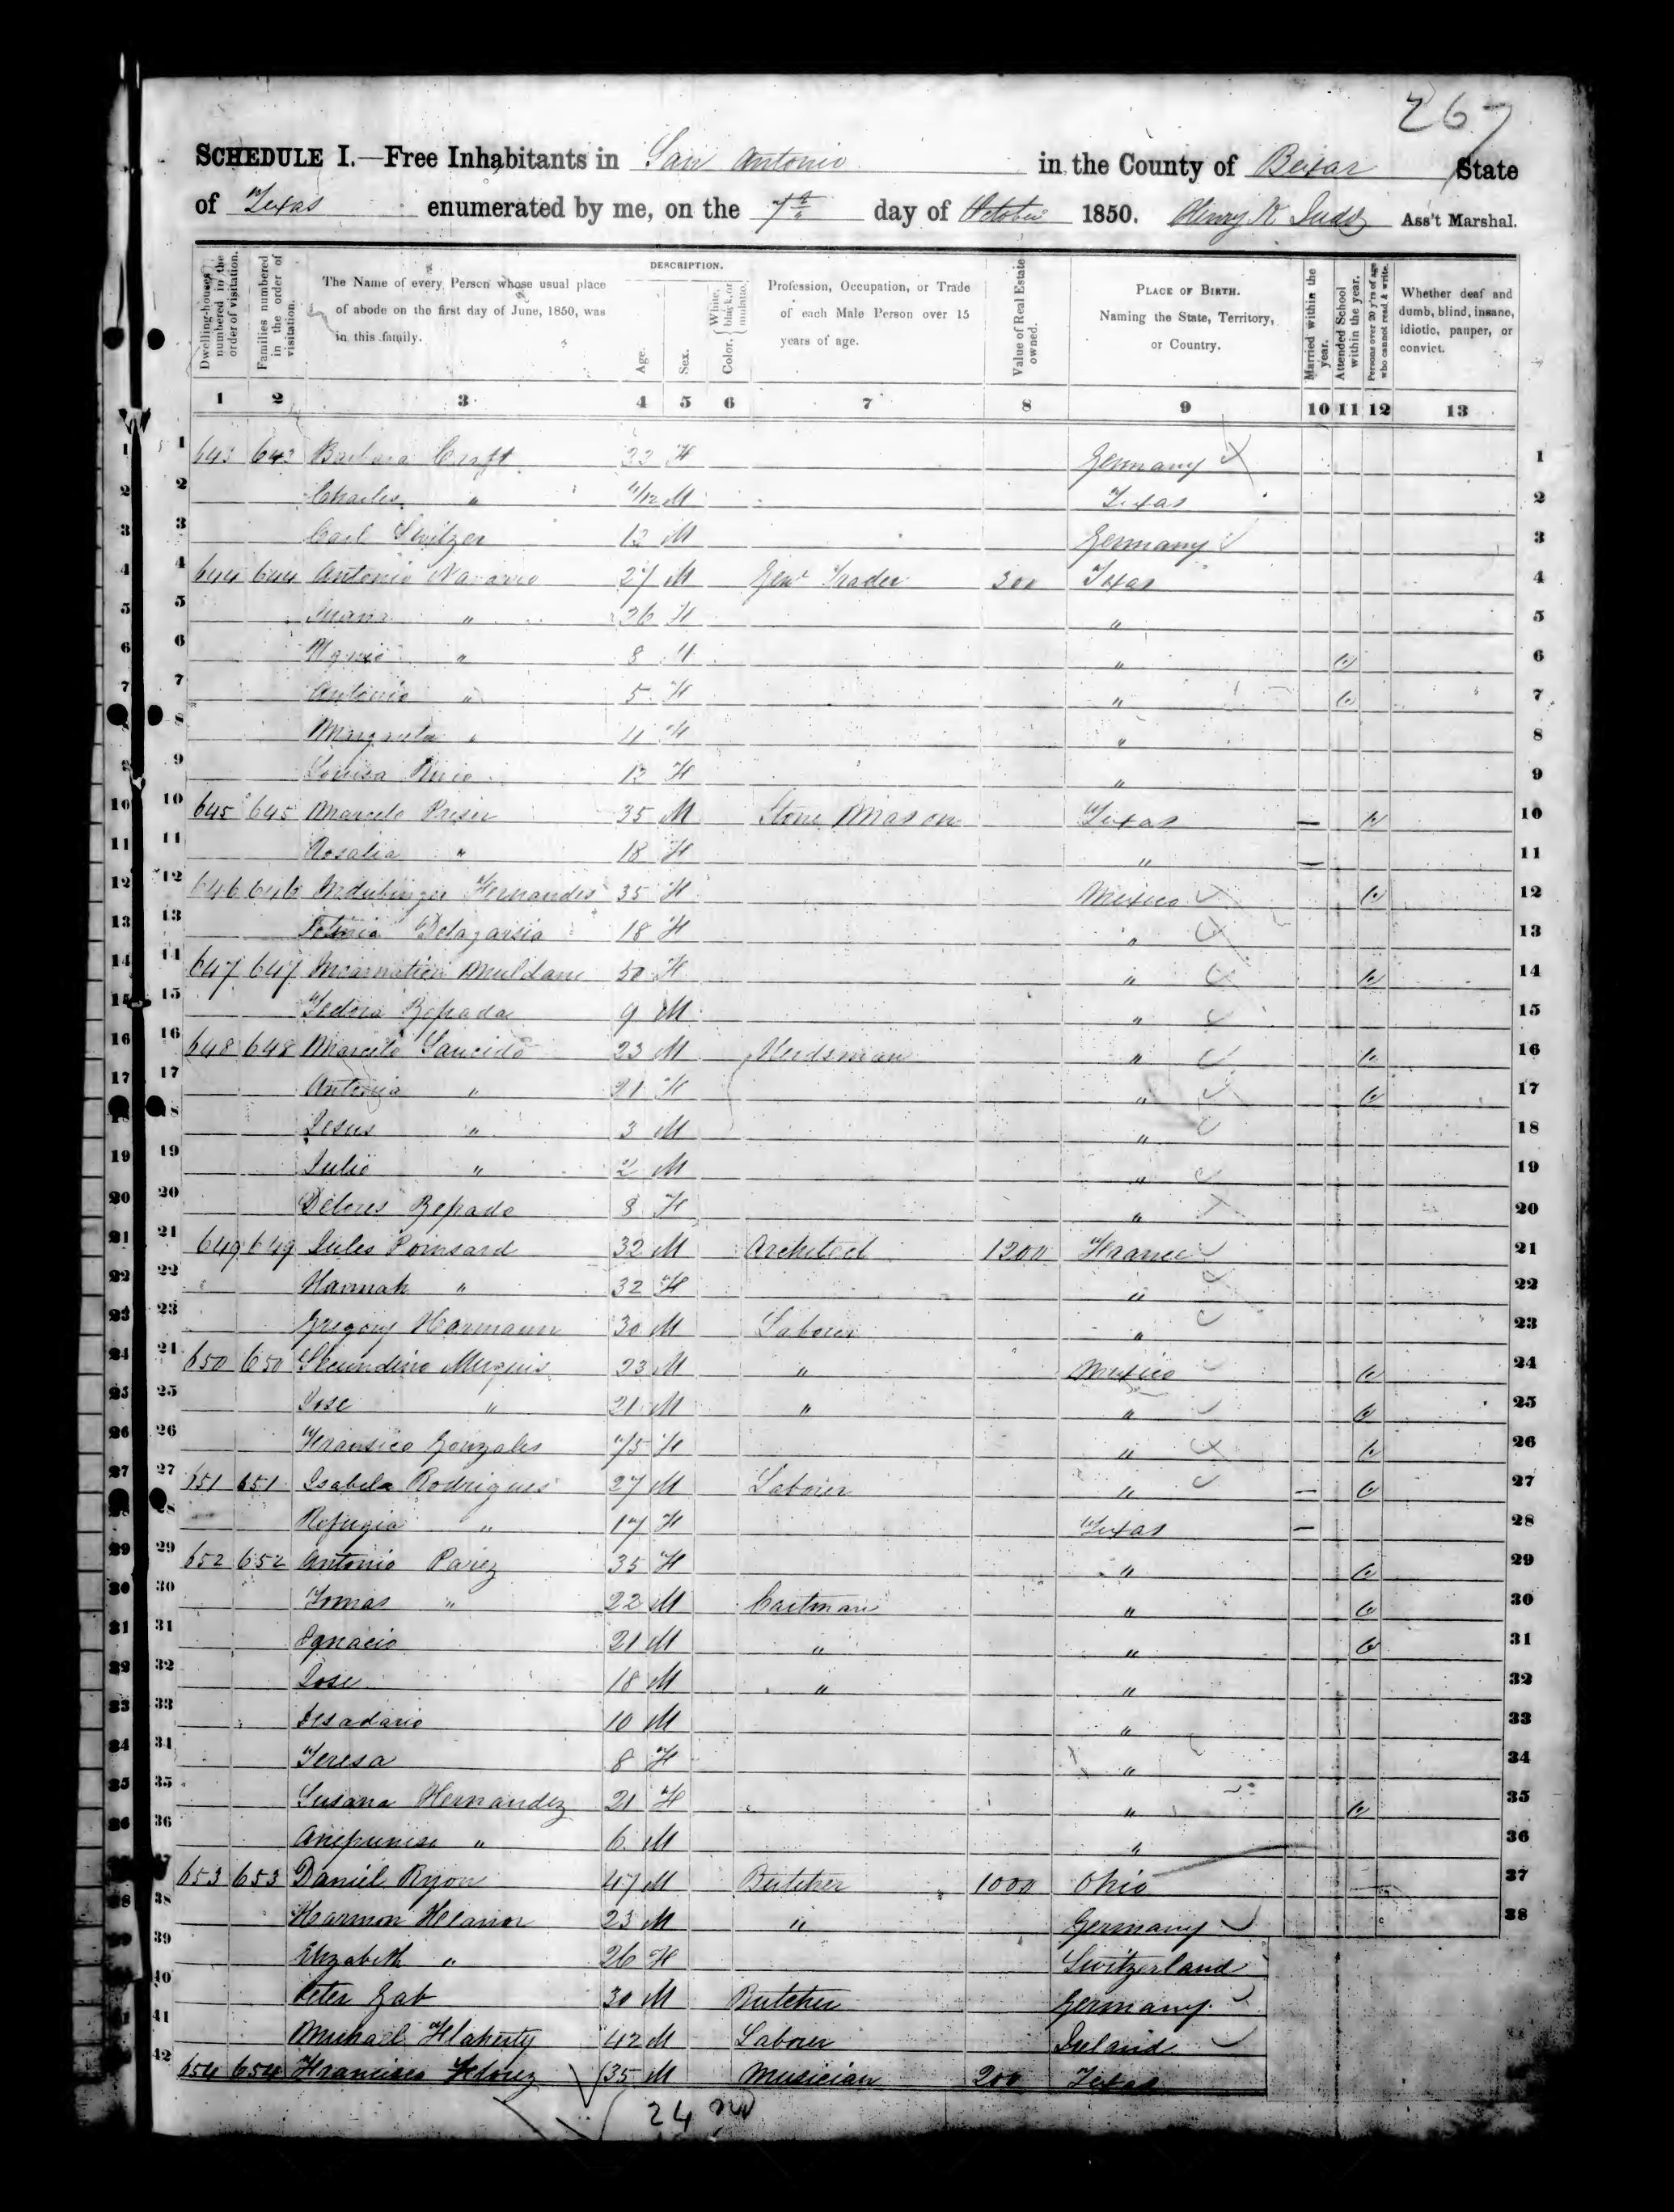 267
SCHEDULE I.—Free Inhabitants in San Antonio in the County of Bexar State
of Texas enumerated by me, on the 7th day of October 1850. Henry K Judd Ass't Marshal.
Dwelling-houses numbered in the order of visitation.
Families numbered in the order of visitation.
The Name of every Person whose usual place of abode on the first day of June, 1850, was in this family.
DESCRIPTION.
Age.
Sex.
Color, White, black, or mulatto.
Profession, Occupation, or Trade of each Male Person over 15 years of age.
Value of Real Estate owned.
PLACE OF BIRTH. Naming the State, Territory, or Country.
Married within the year.
Attended School within the year.
Persons over 20 y'rs of age who cannot read & write.
Whether deaf and dumb, blind, insane, idiotic, pauper, or convict.
1 2 3 4 5 6 7 8 9 10 11 12 13
1 643 643 Barbara Craft 22 F Germany 1
2 Charles " 11/12 M Texas 2
3 Carl Switzer 12 M Germany 3
4 644 644 Antonio Navarro 27 M Genl Trader 300 Texas 4
5 Juana " 26 F " 5
6 " 8 " 6
7 Antonio " 5 F " 7
8 Margarita " 4 F " 8
9 Louisa 12 F " 9
10 645 645 Marcelo 35 M Stone Mason Texas 10
11 Rosalia " 18 F " 11
12 646 646 Hernandes 35 F Mexico 12
13 Delagarsia 18 F " 13
14 647 647 Incarnation 50 F " 14
15 Zepada 9 M " 15
16 648 648 Marcelo Saucido 23 M Herdsman " 16
17 Antonia " 21 F " 17
18 Jesus " 3 M " 18
19 Julio " 2 M " 19
20 Delores Zepado 8 F " 20
21 649 649 Jules Poinsard 32 M Architect 1200 France 21
22 Hannah " 32 F " 22
23 Gregory Harmann 30 M Laborer " 23
24 650 650 Secundino 23 M " Mexico 24
25 Jose " 21 M " " 25
26 Fransico Gonzales 75 F " 26
27 651 651 Isabela Rodrigues 27 M Laborer " 27
28 Refugia " 17 F Texas 28
29 652 652 Antonio Parez 35 F " 29
30 Tomas " 22 M Cartman " 30
31 Ignacio 21 M " " 31
32 Jose 18 M " " 32
33 Desadario 10 M " 33
34 Teresa 8 F " 34
35 Susana Hernandez 21 F " 35
36 " 6 M " 36
37 653 653 Daniel Ryon 47 M Butcher 1000 Ohio 37
38 Harmon 23 M " Germany 38
39 Elizabeth " 26 F Switzerland
40 Peter Gab 30 M Butcher Germany
41 Michael Flaherty 42 M Laborer Ireland
42 654 654 Francisco Florez 35 M Musician 200 Texas
24